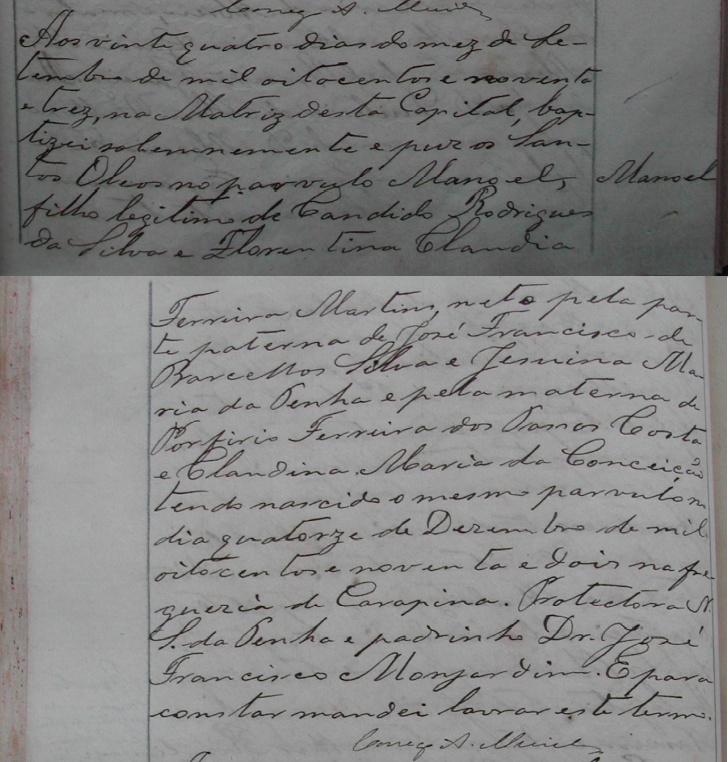 Coneg A. Muniz
Aos vinte quatro dias do mez de Se-
tembro de mil oitocentos e noventa
e trez, na Matriz desta Capital, bap-
tizei solemnemente e puz os San-
tos Oleos no parvulo Manoel, Manoel
filho legitimo de Candido Rodrigues
da Silva e Florentina Claudia
Ferreira Martins, neto pela par-
te paterna de José Francisco de
Barcellos Silva e Jesuina Ma-
ria da Penha e pela materna de
Porfirio Ferreira dos Passos Costa
e Claudina Maria da Conceição
tendo nascido o mesmo parvulo n
dia quatorze de Dezembro de mil
oitocentos e noventa e dois na fre
guezia de Carapina. Protectora N.
S. da Penha e padrinho Dr. José
Francisco Monjardim. E para
constar mandei lavrar este termo.
Coneg A.